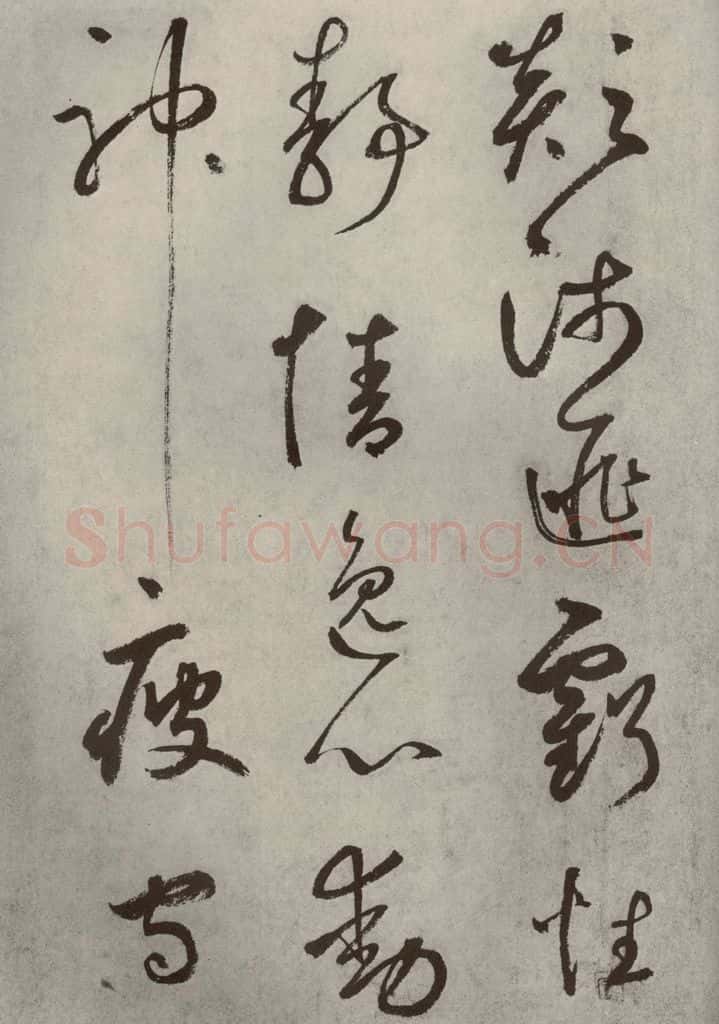 顛沛匪虧性
靜情逸心動
神疲守
Shufawang.CN